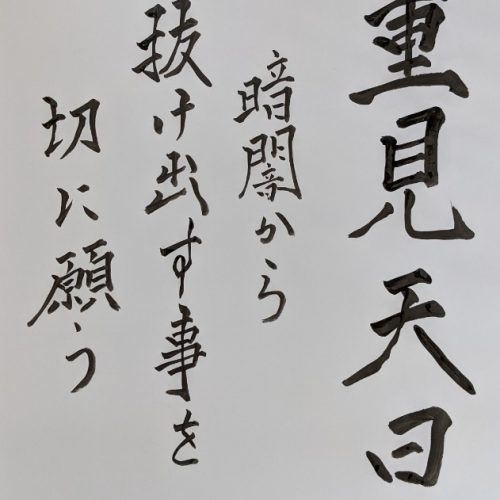 重見天日
暗闇から
抜け出す事を
切に願う